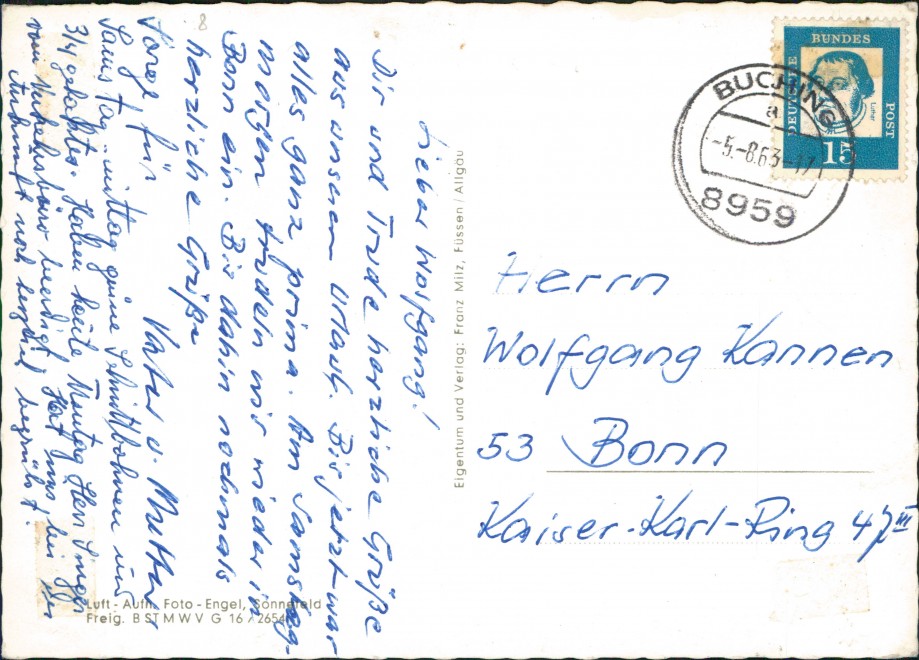 Lieber Wolfgang!
Dir und Trude herzliche Grüße
aus unserem Urlaub. Bis jetzt war
alles ganz prima. Am Samstag-
morgen trudeln wir wieder in
Bonn ein. Bis dahin nochmals
herzliche Grüße
Vater u. Mutter
Sorge für
Samstag mittag grüne Schnittbohnen und
3/4 gehacktes. Haben heute Montag Herr
vom Verkehrsbüro beerdigt, Hat uns bei der
Ankunft noch begrüßt.
8
Eigentum und Verlag: Franz Milz, Füssen / Allgäu
Luft - Aufn. Foto - Engel, Sonnefeld
Freig. B ST M W V G 16 / 2654
DEUTSCHE
BUNDES
POST
Luther
15
BUCHING
a
-5.-8.63-17
8959
Herrn
Wolfgang Kannen
53 Bonn
Kaiser-Karl-Ring 47 III